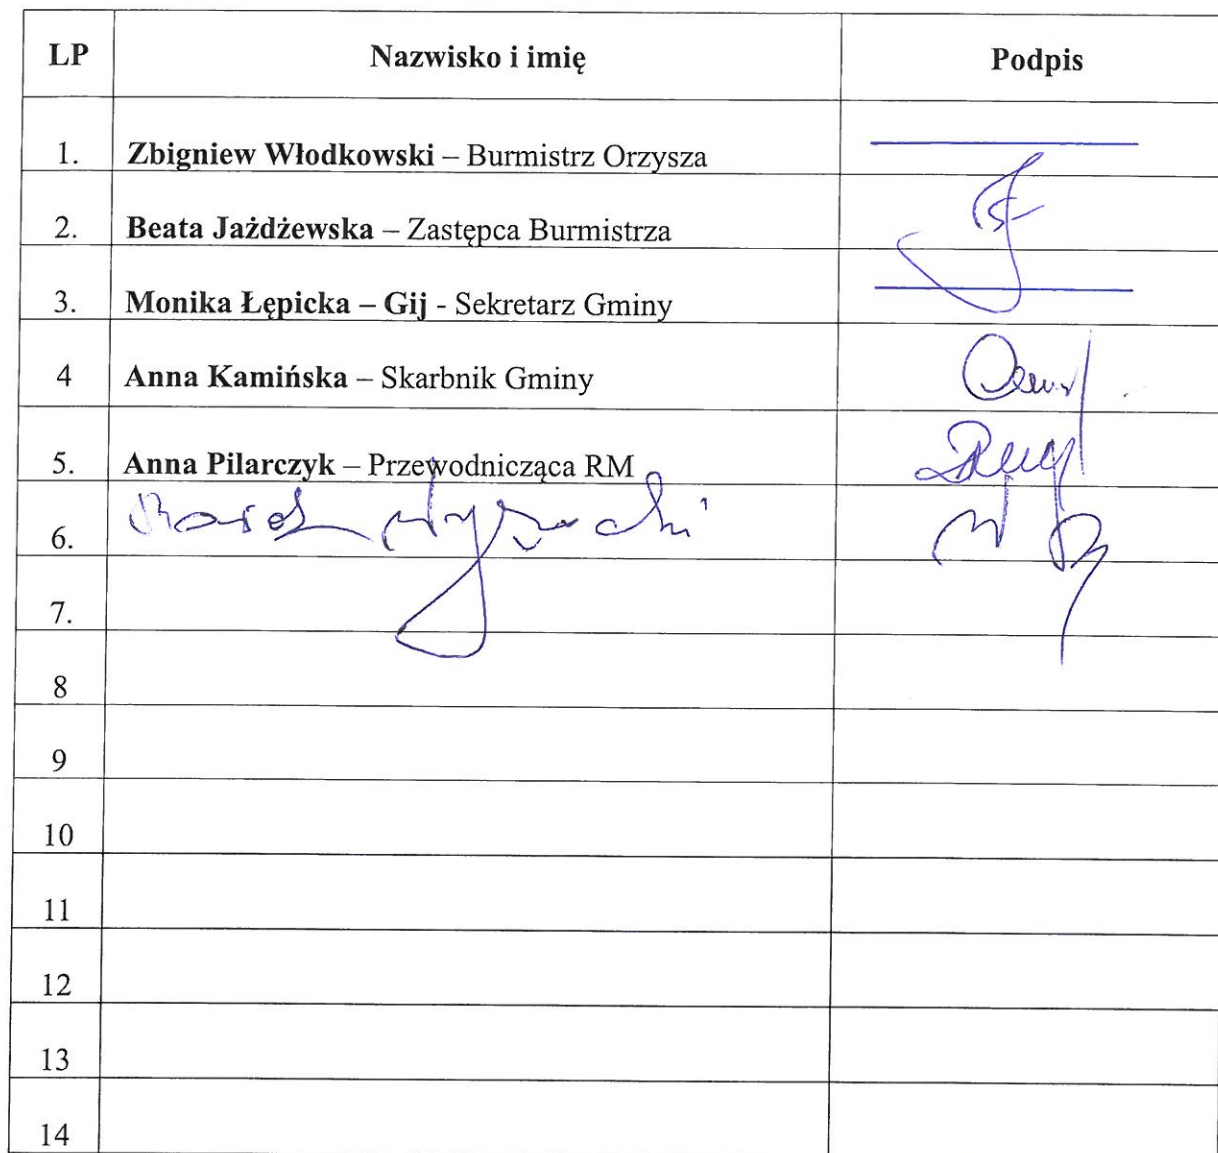 LP Nazwisko i imię Podpis
1. Zbigniew Włodkowski – Burmistrz Orzysza
2. Beata Jażdżewska – Zastępca Burmistrza
3. Monika Łępicka – Gij - Sekretarz Gminy
4 Anna Kamińska – Skarbnik Gminy
5. Anna Pilarczyk – Przewodnicząca RM
6.
7.
8
9
10
11
12
13
14